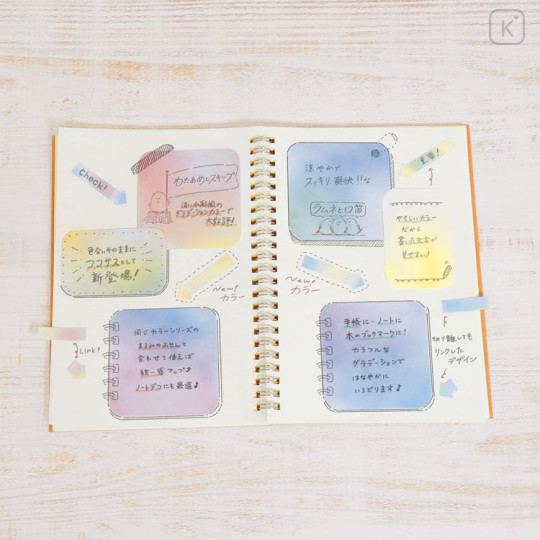 K
check!
わためとスキップ
淡い水彩風の
グラデーションカラーで
大好評!
色合いそのままに
ココサスとして
新登場!
New!
カラー
Link!
同じカラーシリーズの
まるみのふせんで
合わせて使えば
統一感アップ♪
ノートデコにも最適♪
涼やかで
スッキリ爽快!!な
ラムネと口笛
見出し!
やさしいカラー
だから
書いた文字が
見やすい!
New!
カラー
手帳に・ノートに
本のブックマークに!
カラフルな
グラデーションで
はなやかに
いろどります♪
切り離しても
リンクした
デザイン